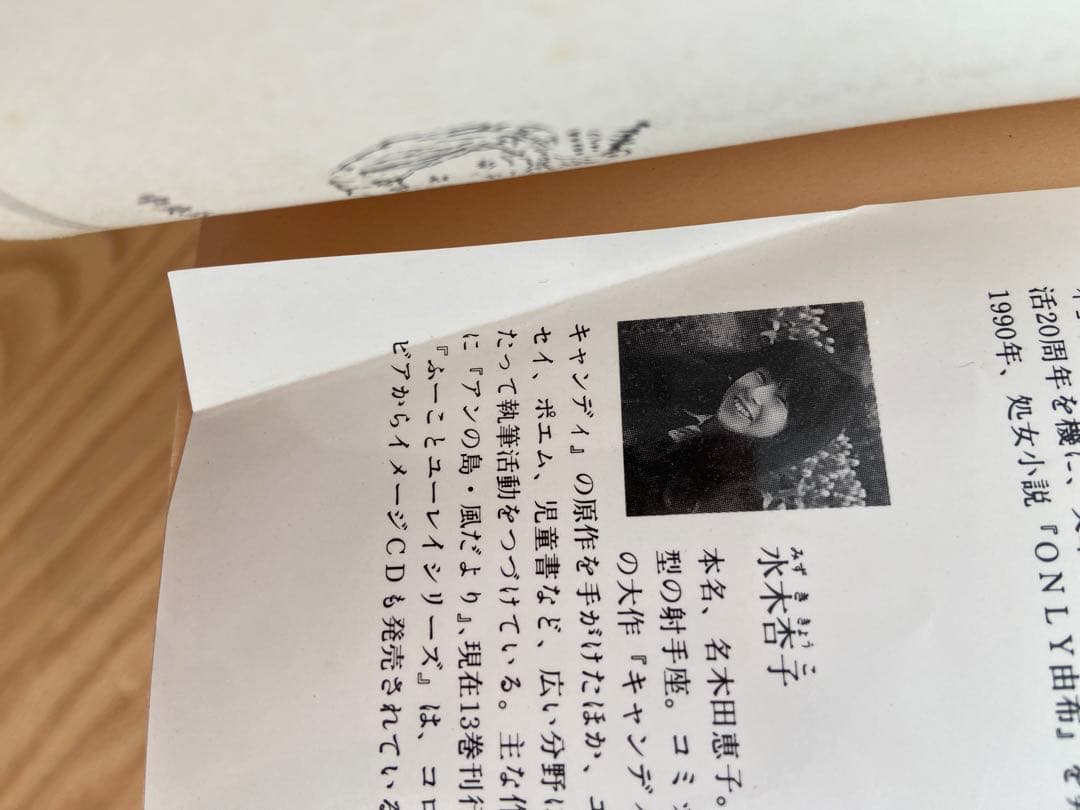 活20周年を機に、
1990年、処女小説『ONLY由布』を
みずききょうこ
水木杏子
本名、名木田恵子。
型の射手座。コミ
の大作『キャンデ
キャンディ』の原作を手がけたほか、エ
セイ、ポエム、児童書など、広い分野に
たって執筆活動をつづけている。主な作
に『アンの島・風だより』、現在13巻刊行
『ふーことユーレイシリーズ』は、コロ
ビアからイメージCDも発売されている